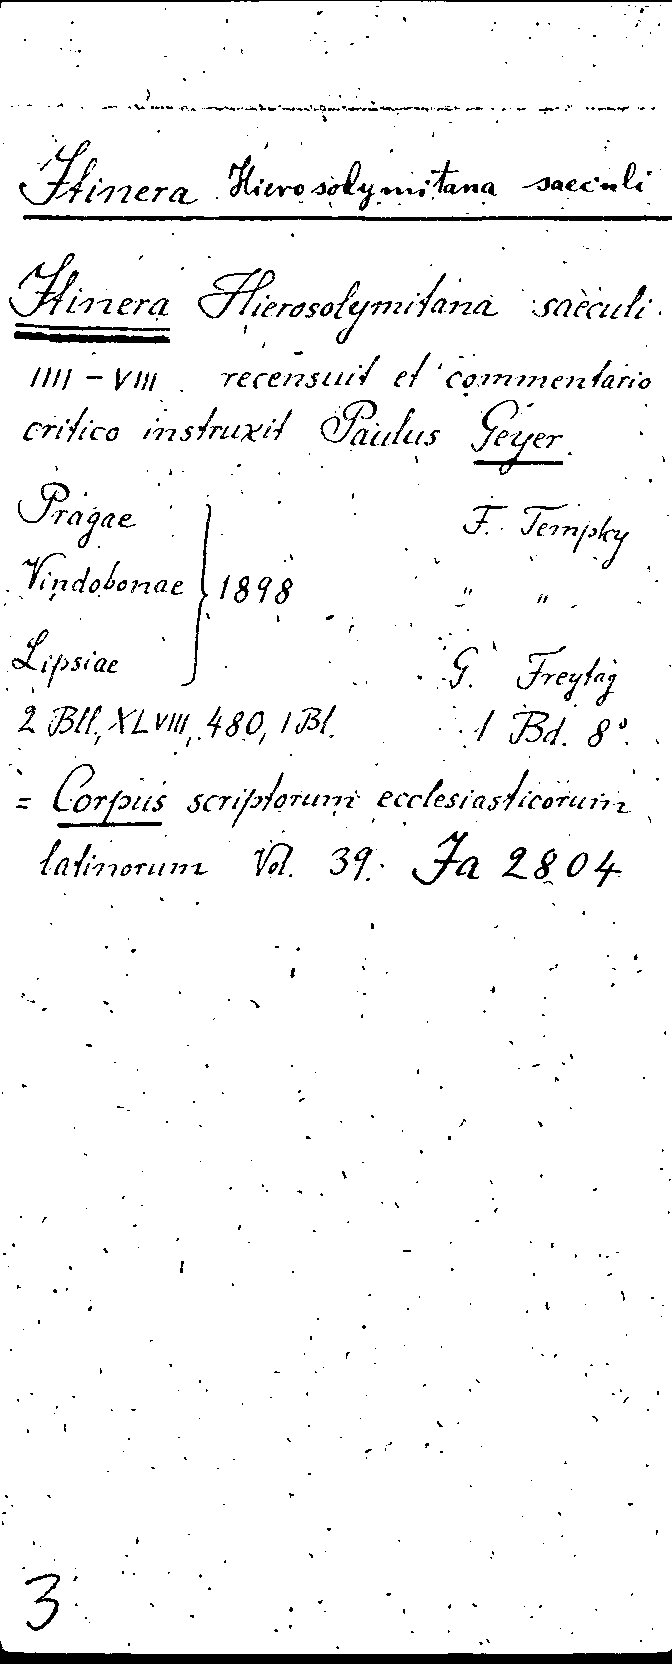 Itinera Hierosolymitana saeculi
Itinera Hierosolymitana saeculi
IIII - VIII recensuit et commentario
critico instruxit Paulus Geyer.
Pragae F. Tempky
Vindobonae } 1898 " "
Lipsiae G. Freytag
2 Bll, XLVIII, 480, 1 Bl. 1 Bd. 8°.
= Corpus scriptorum ecclesiasticorum
latinorum Vol. 39. Ja 2804
3